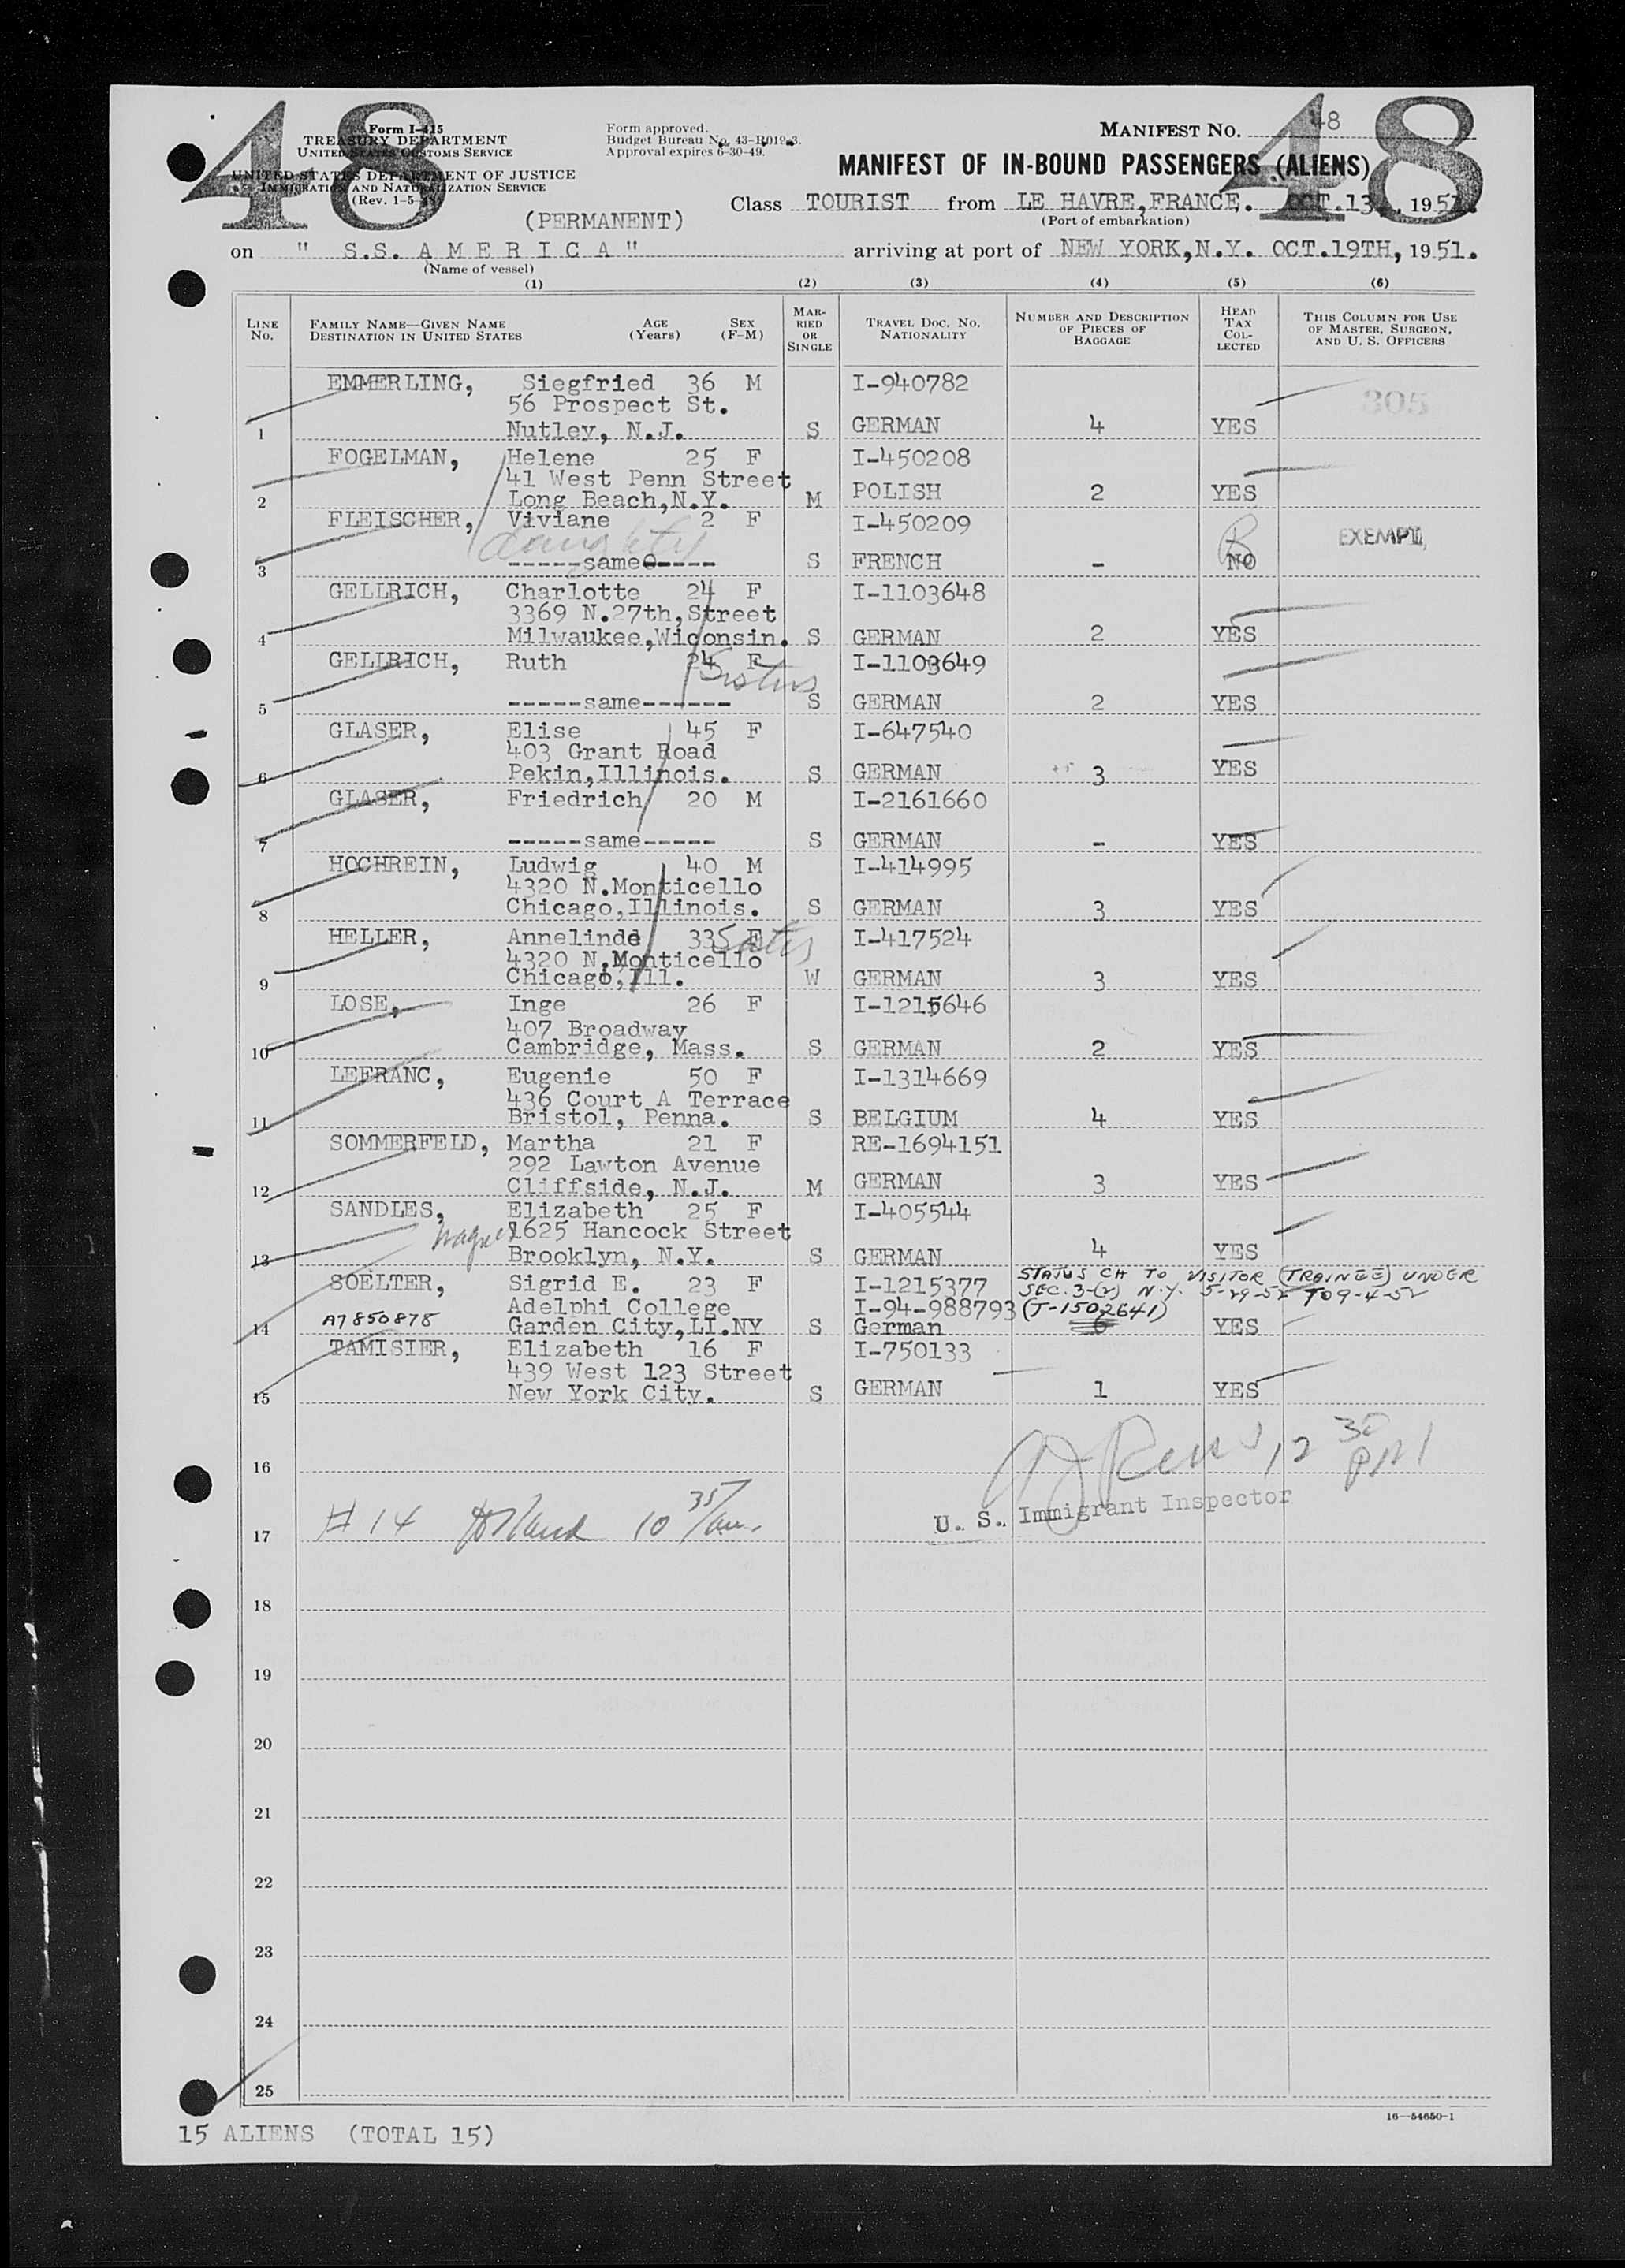 48
48
Form I-415
TREASURY DEPARTMENT
UNITED STATES CUSTOMS SERVICE
UNITED STATES DEPARTMENT OF JUSTICE
IMMIGRATION AND NATURALIZATION SERVICE
(Rev. 1-5-48)
Form approved.
Budget Bureau No. 43-R019-3.
Approval expires 6-30-49.
MANIFEST NO. 48
MANIFEST OF IN-BOUND PASSENGERS (ALIENS)
(PERMANENT)
Class TOURIST from LE HAVRE,FRANCE. OCT.13, 1951.
(Port of embarkation)
on " S.S. A M E R I C A " arriving at port of NEW YORK,N.Y. OCT.19TH, 1951.
(Name of vessel)
(1) (2) (3) (4) (5) (6)
LINE No. FAMILY NAME—GIVEN NAME DESTINATION IN UNITED STATES AGE (Years) SEX (F-M) MARRIED OR SINGLE TRAVEL DOC. NO. NATIONALITY NUMBER AND DESCRIPTION OF PIECES OF BAGGAGE HEAD TAX COLLECTED THIS COLUMN FOR USE OF MASTER, SURGEON, AND U. S. OFFICERS
EMMERLING, Siegfried 36 M I-940782 305
56 Prospect St.
1 Nutley, N.J. S GERMAN 4 YES
FOGELMAN, Helene 25 F I-450208
41 West Penn Street
2 Long Beach,N.Y. M POLISH 2 YES
FLEISCHER, Viviane 2 F I-450209 EXEMPT
daughter
3 -----same----- S FRENCH - NO
GELLRICH, Charlotte 24 F I-1103648
3369 N.27th,Street
4 Milwaukee,Wiconsin. S GERMAN 2 YES
GELLRICH, Ruth 24 F I-1103649
Sisters
5 -----same------ S GERMAN 2 YES
GLASER, Elise 45 F I-647540
403 Grant Road
6 Pekin,Illinois. S GERMAN 3 YES
GLASER, Friedrich 20 M I-2161660
7 -----same----- S GERMAN - YES
HOCHREIN, Ludwig 40 M I-414995
4320 N.Monticello
8 Chicago,Illinois. S GERMAN 3 YES
HELLER, Annelinde 33 F I-417524
4320 N.Monticello
9 Chicago,Ill. W GERMAN 3 YES
LOSE, Inge 26 F I-1215646
407 Broadway
10 Cambridge, Mass. S GERMAN 2 YES
LEFRANC, Eugenie 50 F I-1314669
436 Court A Terrace
11 Bristol, Penna. S BELGIUM 4 YES
SOMMERFELD, Martha 21 F RE-1694151
292 Lawton Avenue
12 Cliffside, N.J. M GERMAN 3 YES
SANDLES, Elizabeth 25 F I-405544
Wagner 1625 Hancock Street
13 Brooklyn, N.Y. S GERMAN 4 YES
SOELTER, Sigrid E. 23 F I-1215377 STATUS CH TO VISITOR (TRAINEE) UNDER
Adelphi College I-94-988793 SEC. 3-(2) N.Y. 5-29-52 TO 9-4-52
A7850878 (T-1502641)
14 Garden City,LI.NY S German 6 YES
TAMISIER, Elizabeth 16 F I-750133
439 West 123 Street
15 New York City. S GERMAN 1 YES
16 12 30 PM
U. S. Immigrant Inspector
17 #14 10 35/am.
18
19
20
21
22
23
24
25
16—54650-1
15 ALIENS (TOTAL 15)